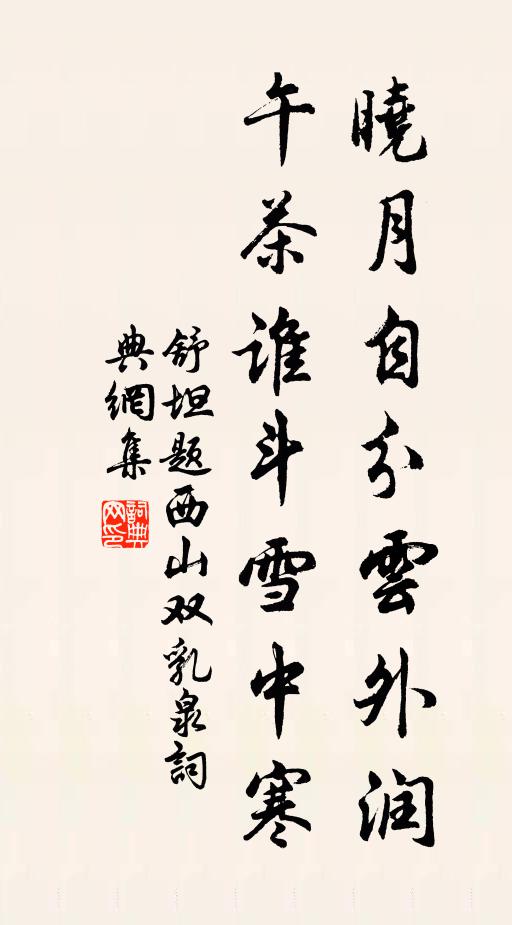 曉月自分雲外润
午茶谁斗雪中寒
舒坦题西山双乳泉詞
典網集
詞典网印